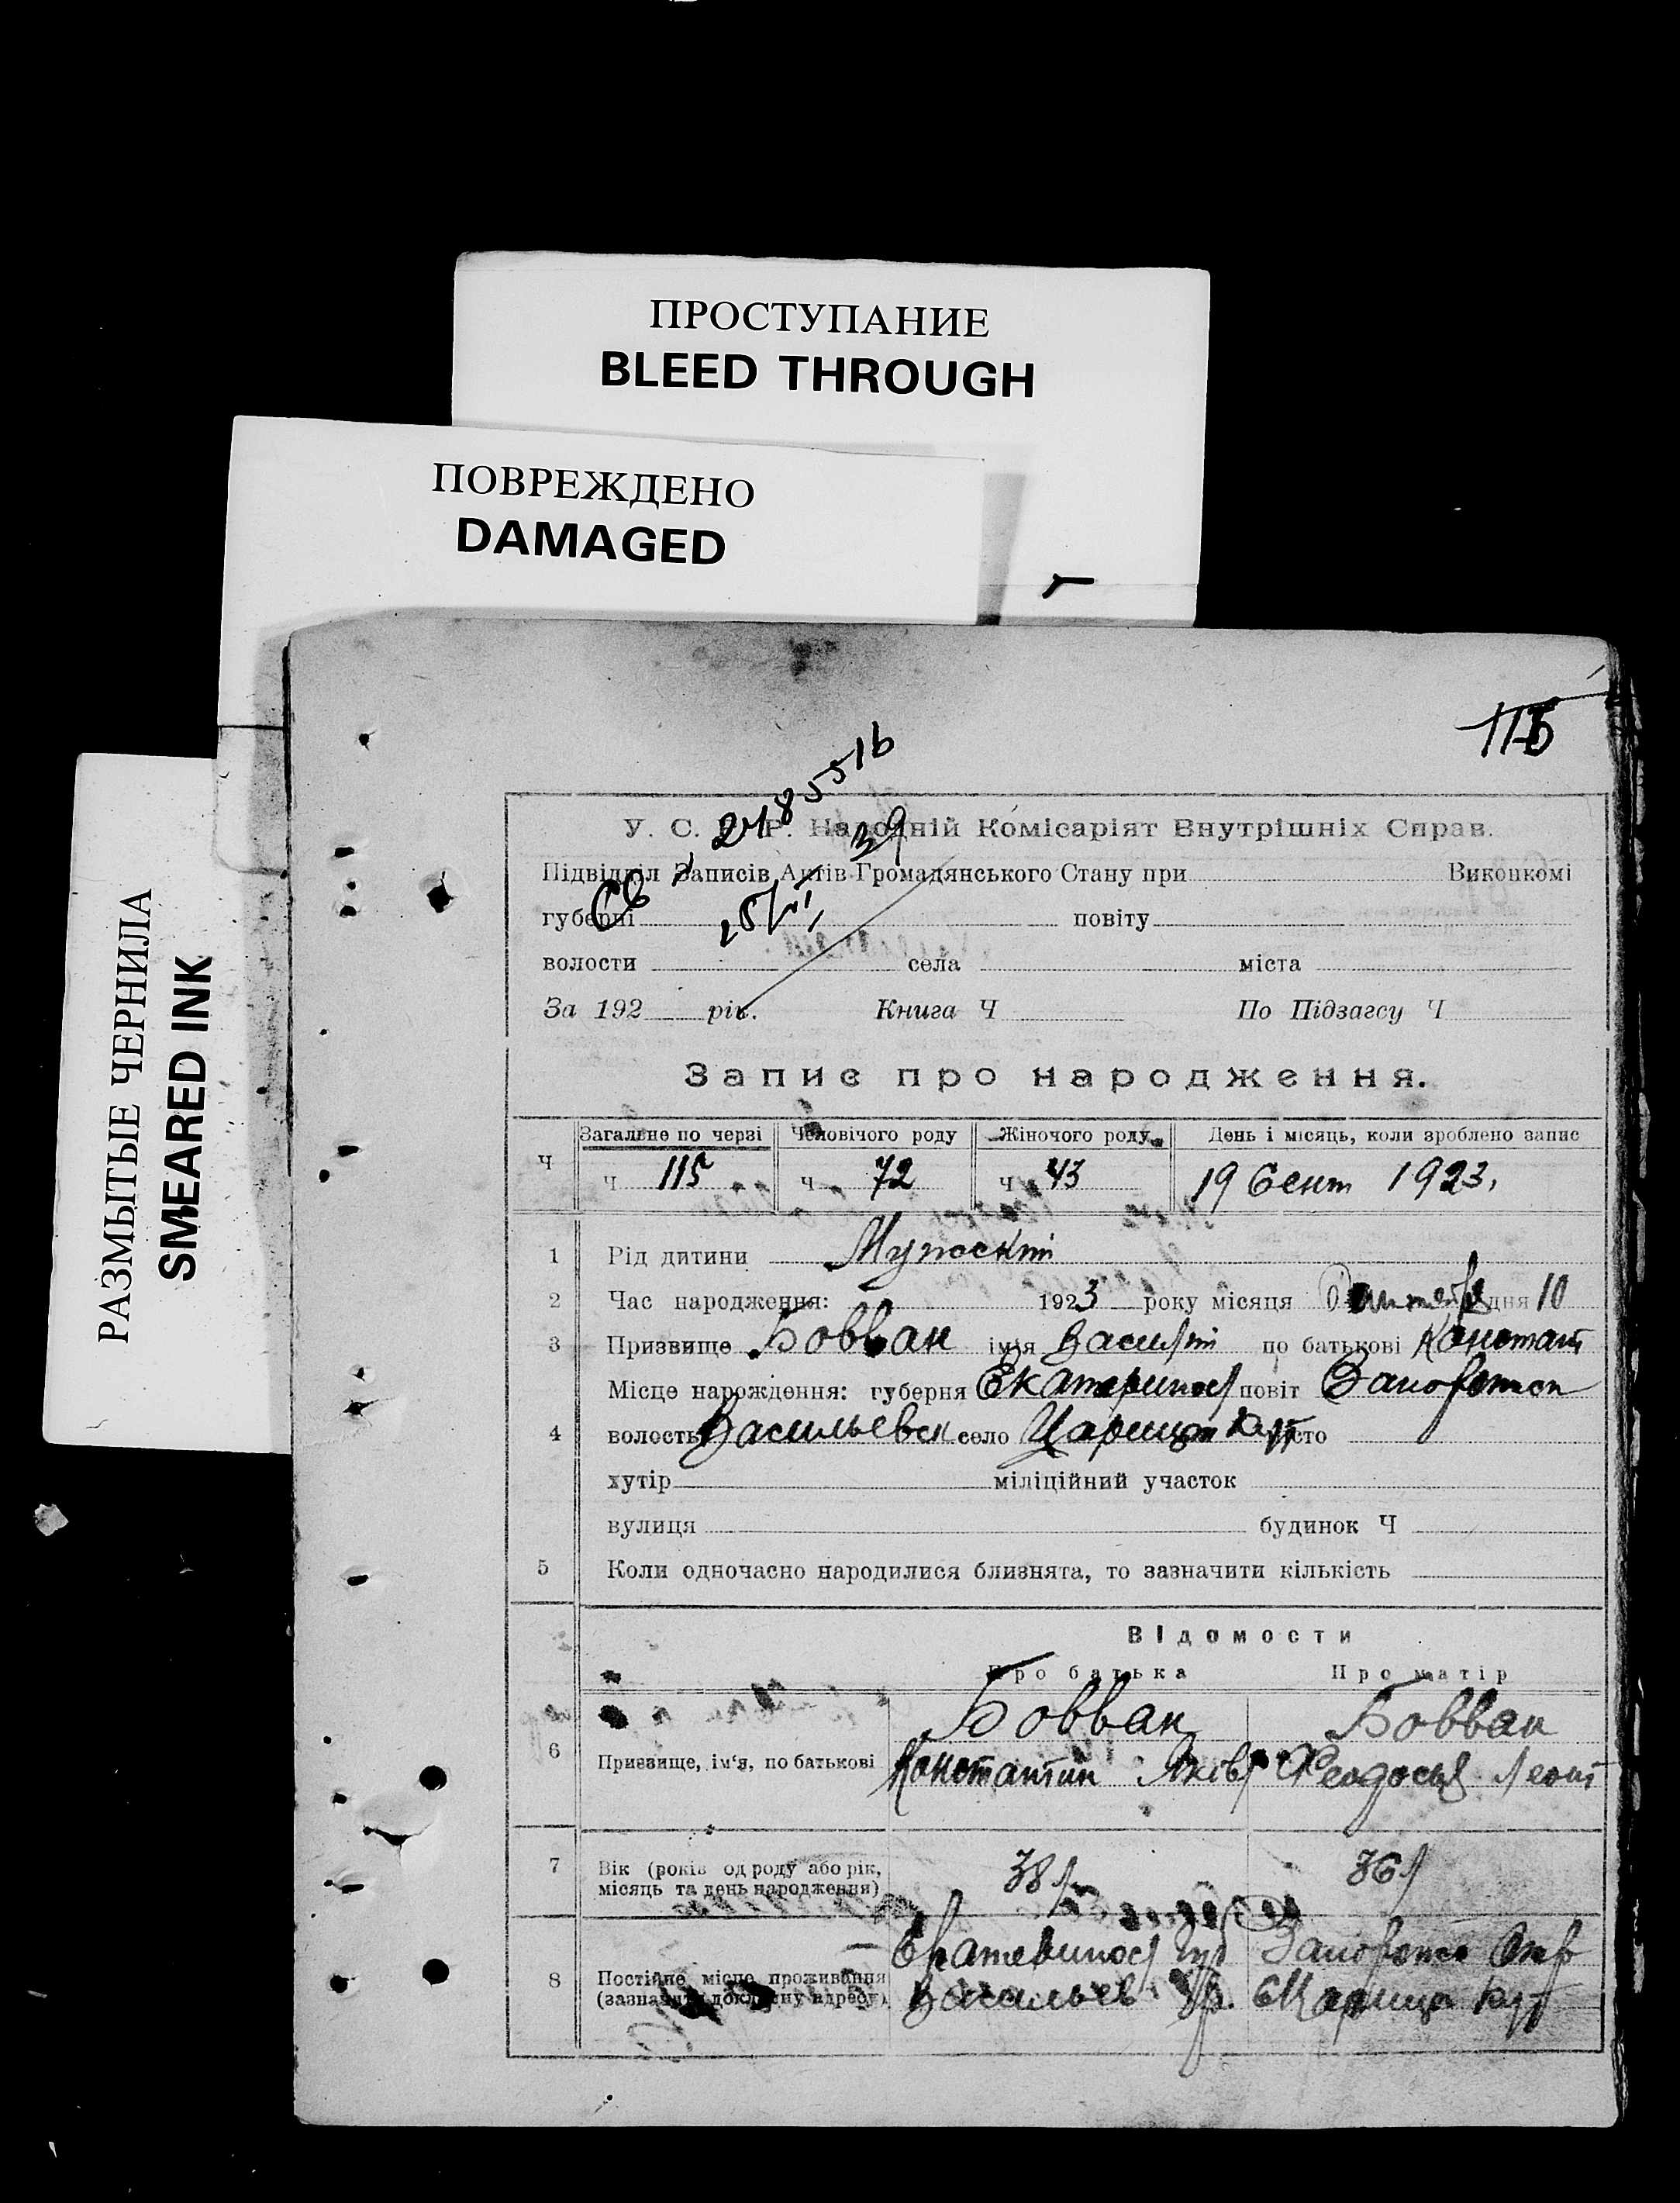 ПРОСТУПАНИЕ
BLEED THROUGH
ПОВРЕЖДЕНО
DAMAGED
РАЗМЫТЫЕ ЧЕРНИЛА
SMEARED INK
115
2485516
39
У. С. Р. Р. Народній Комісаріят Внутрішніх Справ.
Підвідділ Записів Актів Громадянського Стану при Виконкомі
губерні повіту
волости села міста
За 192 рік. Книга Ч По Підзагсу Ч
Запис про народження.
Ч Загальне по черзі Чоловічого роду Жіночого роду День і місяць, коли зроблено запис
ч 115 ч 72 ч 43 19 Сент 1923.
1 Рід дитини Мужескій
2 Час народження: 1923 року місяця дня 10
3 Призвище Бовван ім'я Василій по батькові Констант
Місце народження: губерня Екатериносл повіт
4 волость Васильевск село Царицын Кут місто
хутір міліційний участок
вулиця будинок Ч
5 Коли одночасно народилися близнята, то зазначити кількість
Відомости
Про батька Про матір
Бовван Бовван
6 Призвище, ім'я, по батькові Константин Яковл Феодосья Леонт
7 Вік (років од роду або рік, місяць та день народження) 38 л 36 л
8 Постійне місце проживання (зазначити докладну адресу)
Екатериносл губ
Васильев Царицын Кут